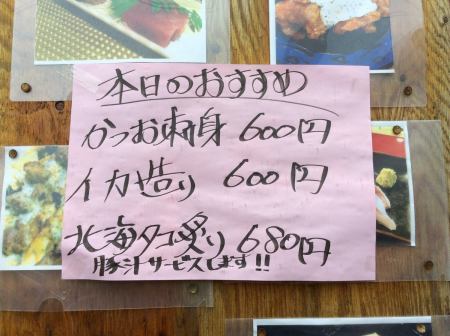 本日のおすすめ
かつお刺身 600円
イカ造り 600円
北海タコ炙り 680円
豚汁サービスします!!